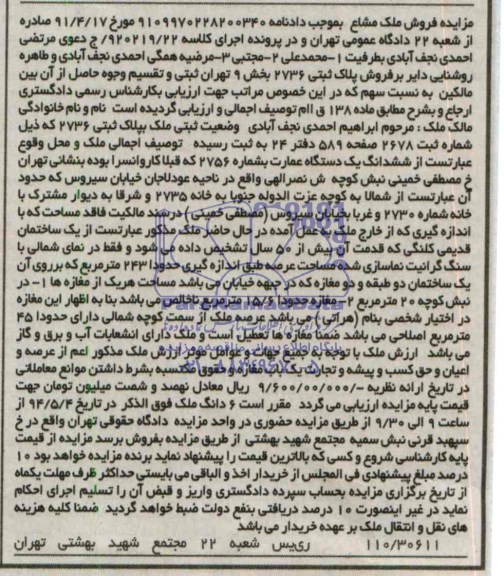 مزایده فروش ملک مشاع بموجب دادنامه ۹۱۰۹۹۷۰۲۲۸۲۰۰۳۴۰ مورخ ۹۱/۴/۱۷ صادره
از شعبه ۲۲ دادگاه عمومی تهران و در پرونده اجرای کلاسه ۹۲۰۲۱۹/۲۲/ ج دعوی مرتضی
احمدی نجف آبادی بطرفیت ۱-محمدعلی ۲-مجتبی ۳-مرضیه همگی احمدی نجف آبادی و طاهره
روشنایی دایر برفروش پلاک ثبتی ۲۷۳۶ بخش ۹ تهران ثبتی و تقسیم وجوه حاصل از آن بین
مالکین به نسبت سهم که در این خصوص مراتب جهت ارزیابی بکارشناس رسمی دادگستری
ارجاع و بشرح مطابق ماده ۱۳۸ ق اام توصیف اجمالی و ارزیابی گردیده است نام و نام خانوادگی
مالک ملک : مرحوم ابراهیم احمدی نجف آبادی وضعیت ثبتی ملک بپلاک ثبتی ۲۷۳۶ که ذیل
شماره ثبت ۲۶۷۸ صفحه ۵۸۹ دفتر ۲۴ به ثبت رسیده توصیف اجمالی ملک و محل وقوع
عبارتست از ششدانگ یک دستگاه عمارت بشماره ۲۷۵۶ که قبلا کاروانسرا بوده بنشانی تهران
خ مصطفی خمینی نبش کوچه ش نصرالهی واقع در ناحیه عودلاجان خیابان سیروس که حدود
آن عبارتست از شمالا به کوچه عزت الدوله جنوبا به خانه ۲۷۳۵ و شرقا به دیوار مشترک با
خانه شماره ۲۷۳۰ و غربا بخیابان سیروس (مصطفی خمینی) در سند مالکیت فاقد مساحت که با
اندازه گیری که از خارج ملک به عمل آمده در حال حاضر ملک مذکور عبارتست از یک ساختمان
قدیمی کلنگی که قدمت آن بیش از ۵۰ سال تشخیص داده می شود و فقط در نمای شمالی با
سنگ گرانیت نماسازی شده مساحت عرصه طبق اندازه گیری حدودا ۲۴۳ مترمربع که برروی آن
یک ساختمان دو طبقه و دو مغازه که در جبهه خیابان می باشد مساحت هریک از مغازه ها ۱- در
نبش کوچه ۲۰ مترمربع ۲- مغازه حدودا ۱۵/۶ مترمربع ناخالص می باشد بنا به اظهار این مغازه
در اختیار شخصی بنام (هراتی) می باشد عرصه ملک از سمت کوچه شمالی دارای حدودا ۴۵
مترمربع اصلاحی می باشد ضمنا مغازه ها تعطیل است و ملک دارای انشعابات آب و برق و گاز
می باشد ارزش ملک با توجه به جمیع جهات و عوامل موثر ارزش ملک مذکور اعم از عرصه و
اعیان و حق کسب و پیشه و تجارت یک باب مغازه و حقوق مکتسبه بشرط داشتن موانع معاملاتی
در تاریخ ارائه نظریه -/۹/۶۰۰/۰۰۰/۰۰۰ ریال معادل نهصد و شصت میلیون تومان جهت
قیمت پایه مزایده ارزیابی می گردد مقرر است ۶ دانگ ملک فوق الذکر در تاریخ ۹۴/۵/۴ از
ساعت ۹ الی ۹/۳۰ از طریق مزایده حضوری در واحد مزایده دادگاه حقوقی تهران واقع در خ
سپهبد قرنی نبش سمیه مجتمع شهید بهشتی از طریق مزایده بفروش برسد مزایده از قیمت
پایه کارشناسی شروع و کسی که بالاترین قیمت را پیشنهاد نماید برنده مزایده خواهد بود ۱۰
درصد مبلغ پیشنهادی فی المجلس از خریدار اخذ و الباقی می بایستی حداکثر ظرف مهلت یکماه
از تاریخ برگزاری مزایده بحساب سپرده دادگستری واریز و قبض آن را تسلیم اجرای احکام
نماید در غیر اینصورت ۱۰ درصد دریافتی بنفع دولت ضبط خواهد گردید ضمنا کلیه هزینه
های نقل و انتقال ملک بر عهده خریدار می باشد
۱۱۰/۳۰۶۱۱ رییس شعبه ۲۲ مجتمع شهید بهشتی تهران